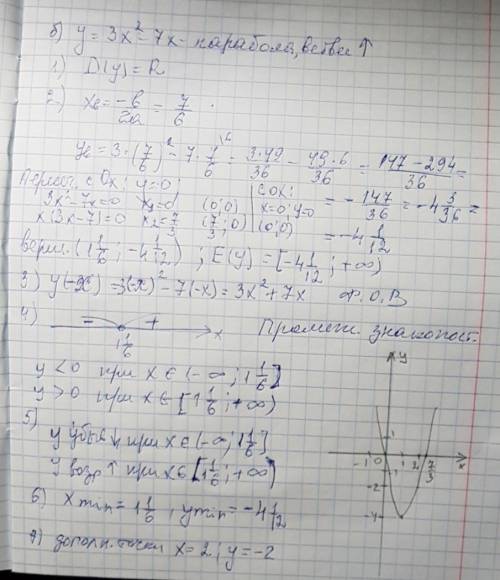 б) y = 3x² - 7x - парабола, ветви ↑
1) D(y) = R
2) xв = -b/2a = 7/6
yв = 3·(7/6)² - 7·7/6 = 3·49/36 - 49·6/36 = 147-294/36 =
= -147/36 = -4 3/36 =
= -4 1/12
Пересеч. с Ox: y=0
3x²-7x=0 x₁=0 (0;0)
x(3x-7)=0 x₂=7/3 (7/3;0)
с OX:
x=0; y=0
(0;0)
верш. (1 1/6; -4 1/12); E(y) = [-4 1/12; +∞)
3) y(-x) = 3(-x)² - 7(-x) = 3x² + 7x Ф.О.В
4) Промеж. знакопост.
- +
1 1/6 x
y < 0 при x ∈ (-∞; 1 1/6]
y > 0 при x ∈ [1 1/6; +∞)
5)
y убыв ↓ при x ∈ (-∞; 1 1/6]
y возр ↑ при x ∈ [1 1/6; +∞)
6) x min = 1 1/6, y min = -4 1/12
7) дополн. точки x = 2; y = -2
y
1
-1 0 1 2 7/3 x
-1
-2
-4